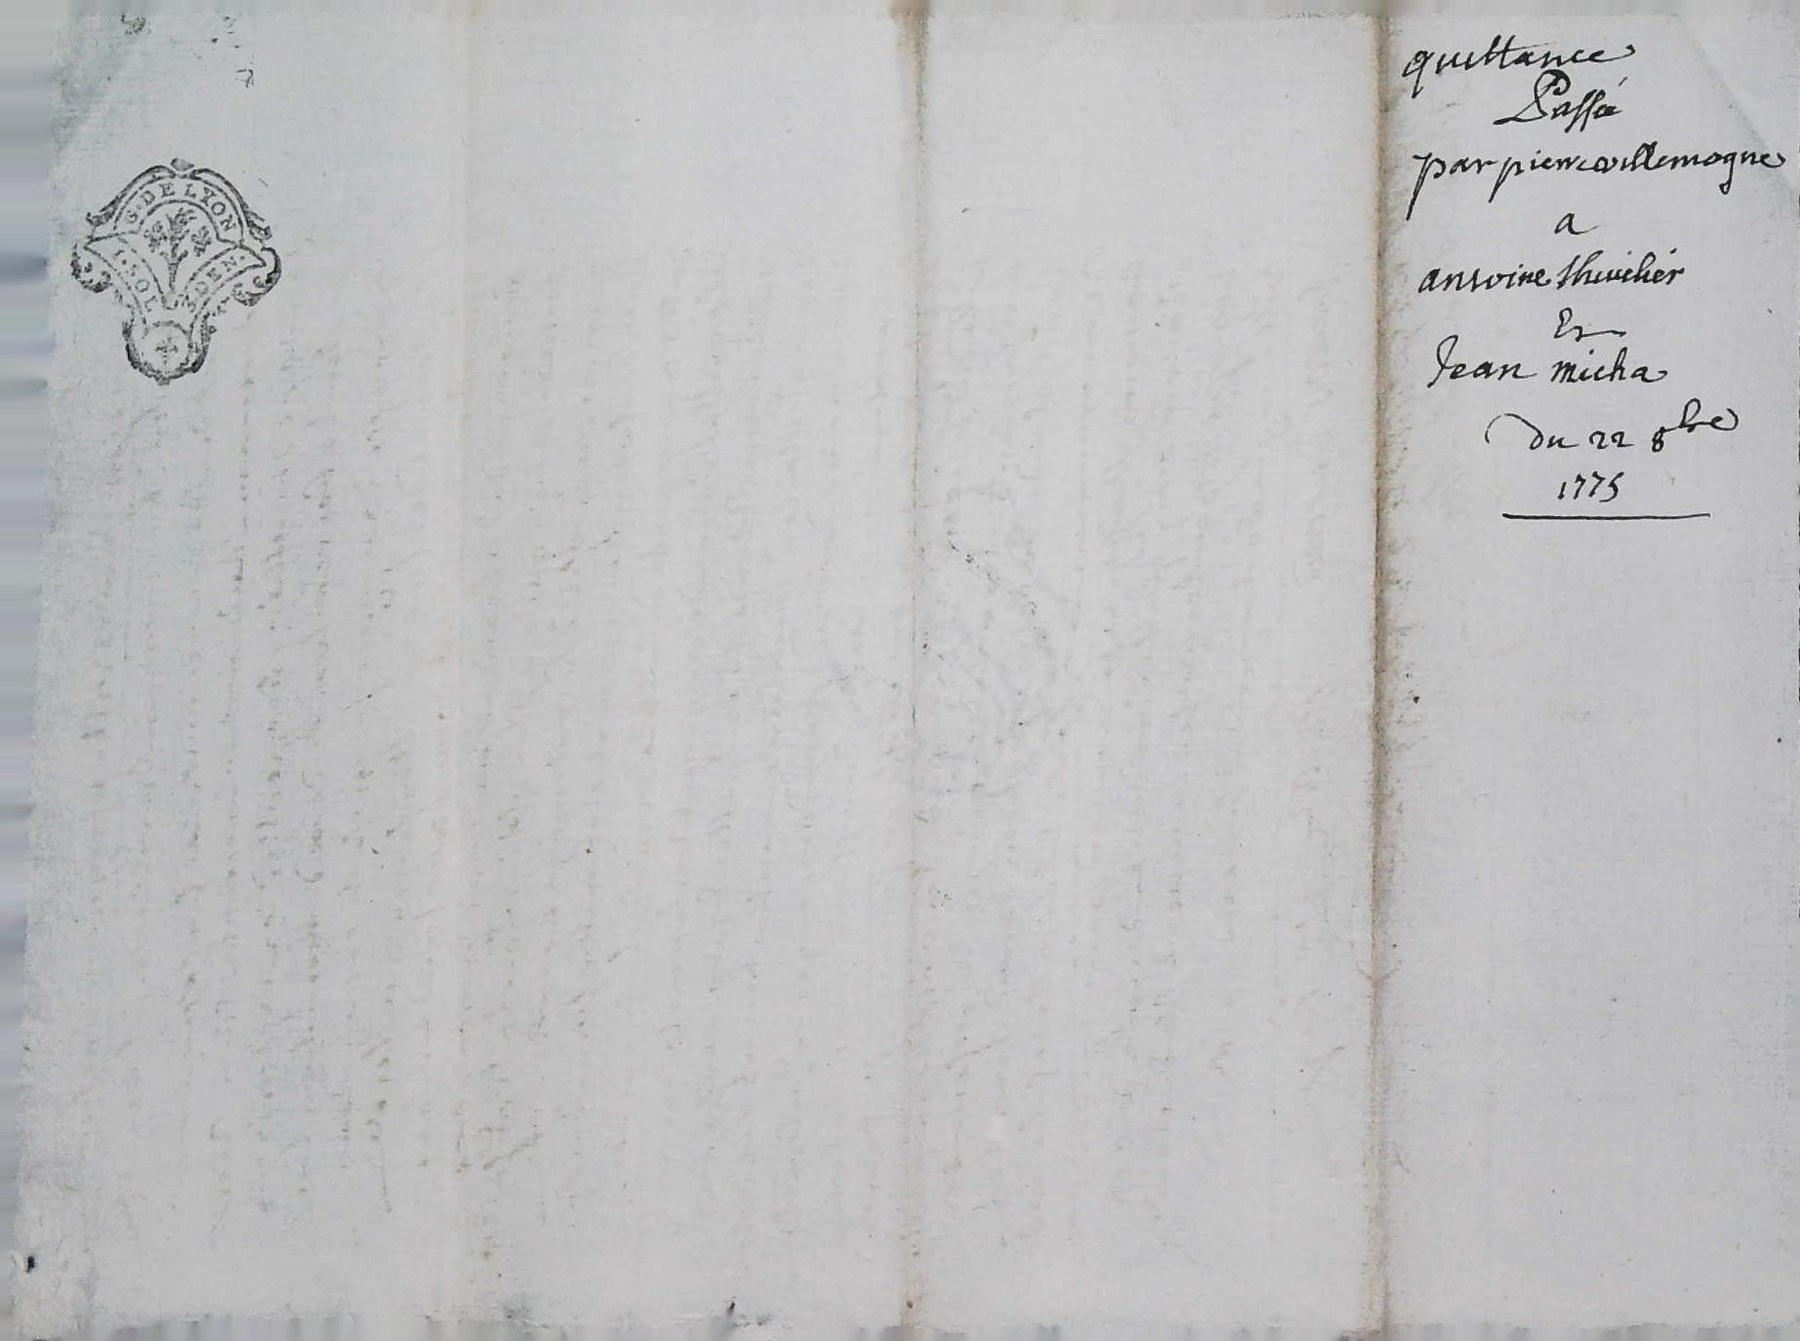 G. DE LYON
1. SOL 8 DEN.
quittance
Passée
par pierre villemagne
a
antoine thivelier
Et
Jean micha
Du 22 8bre
1775